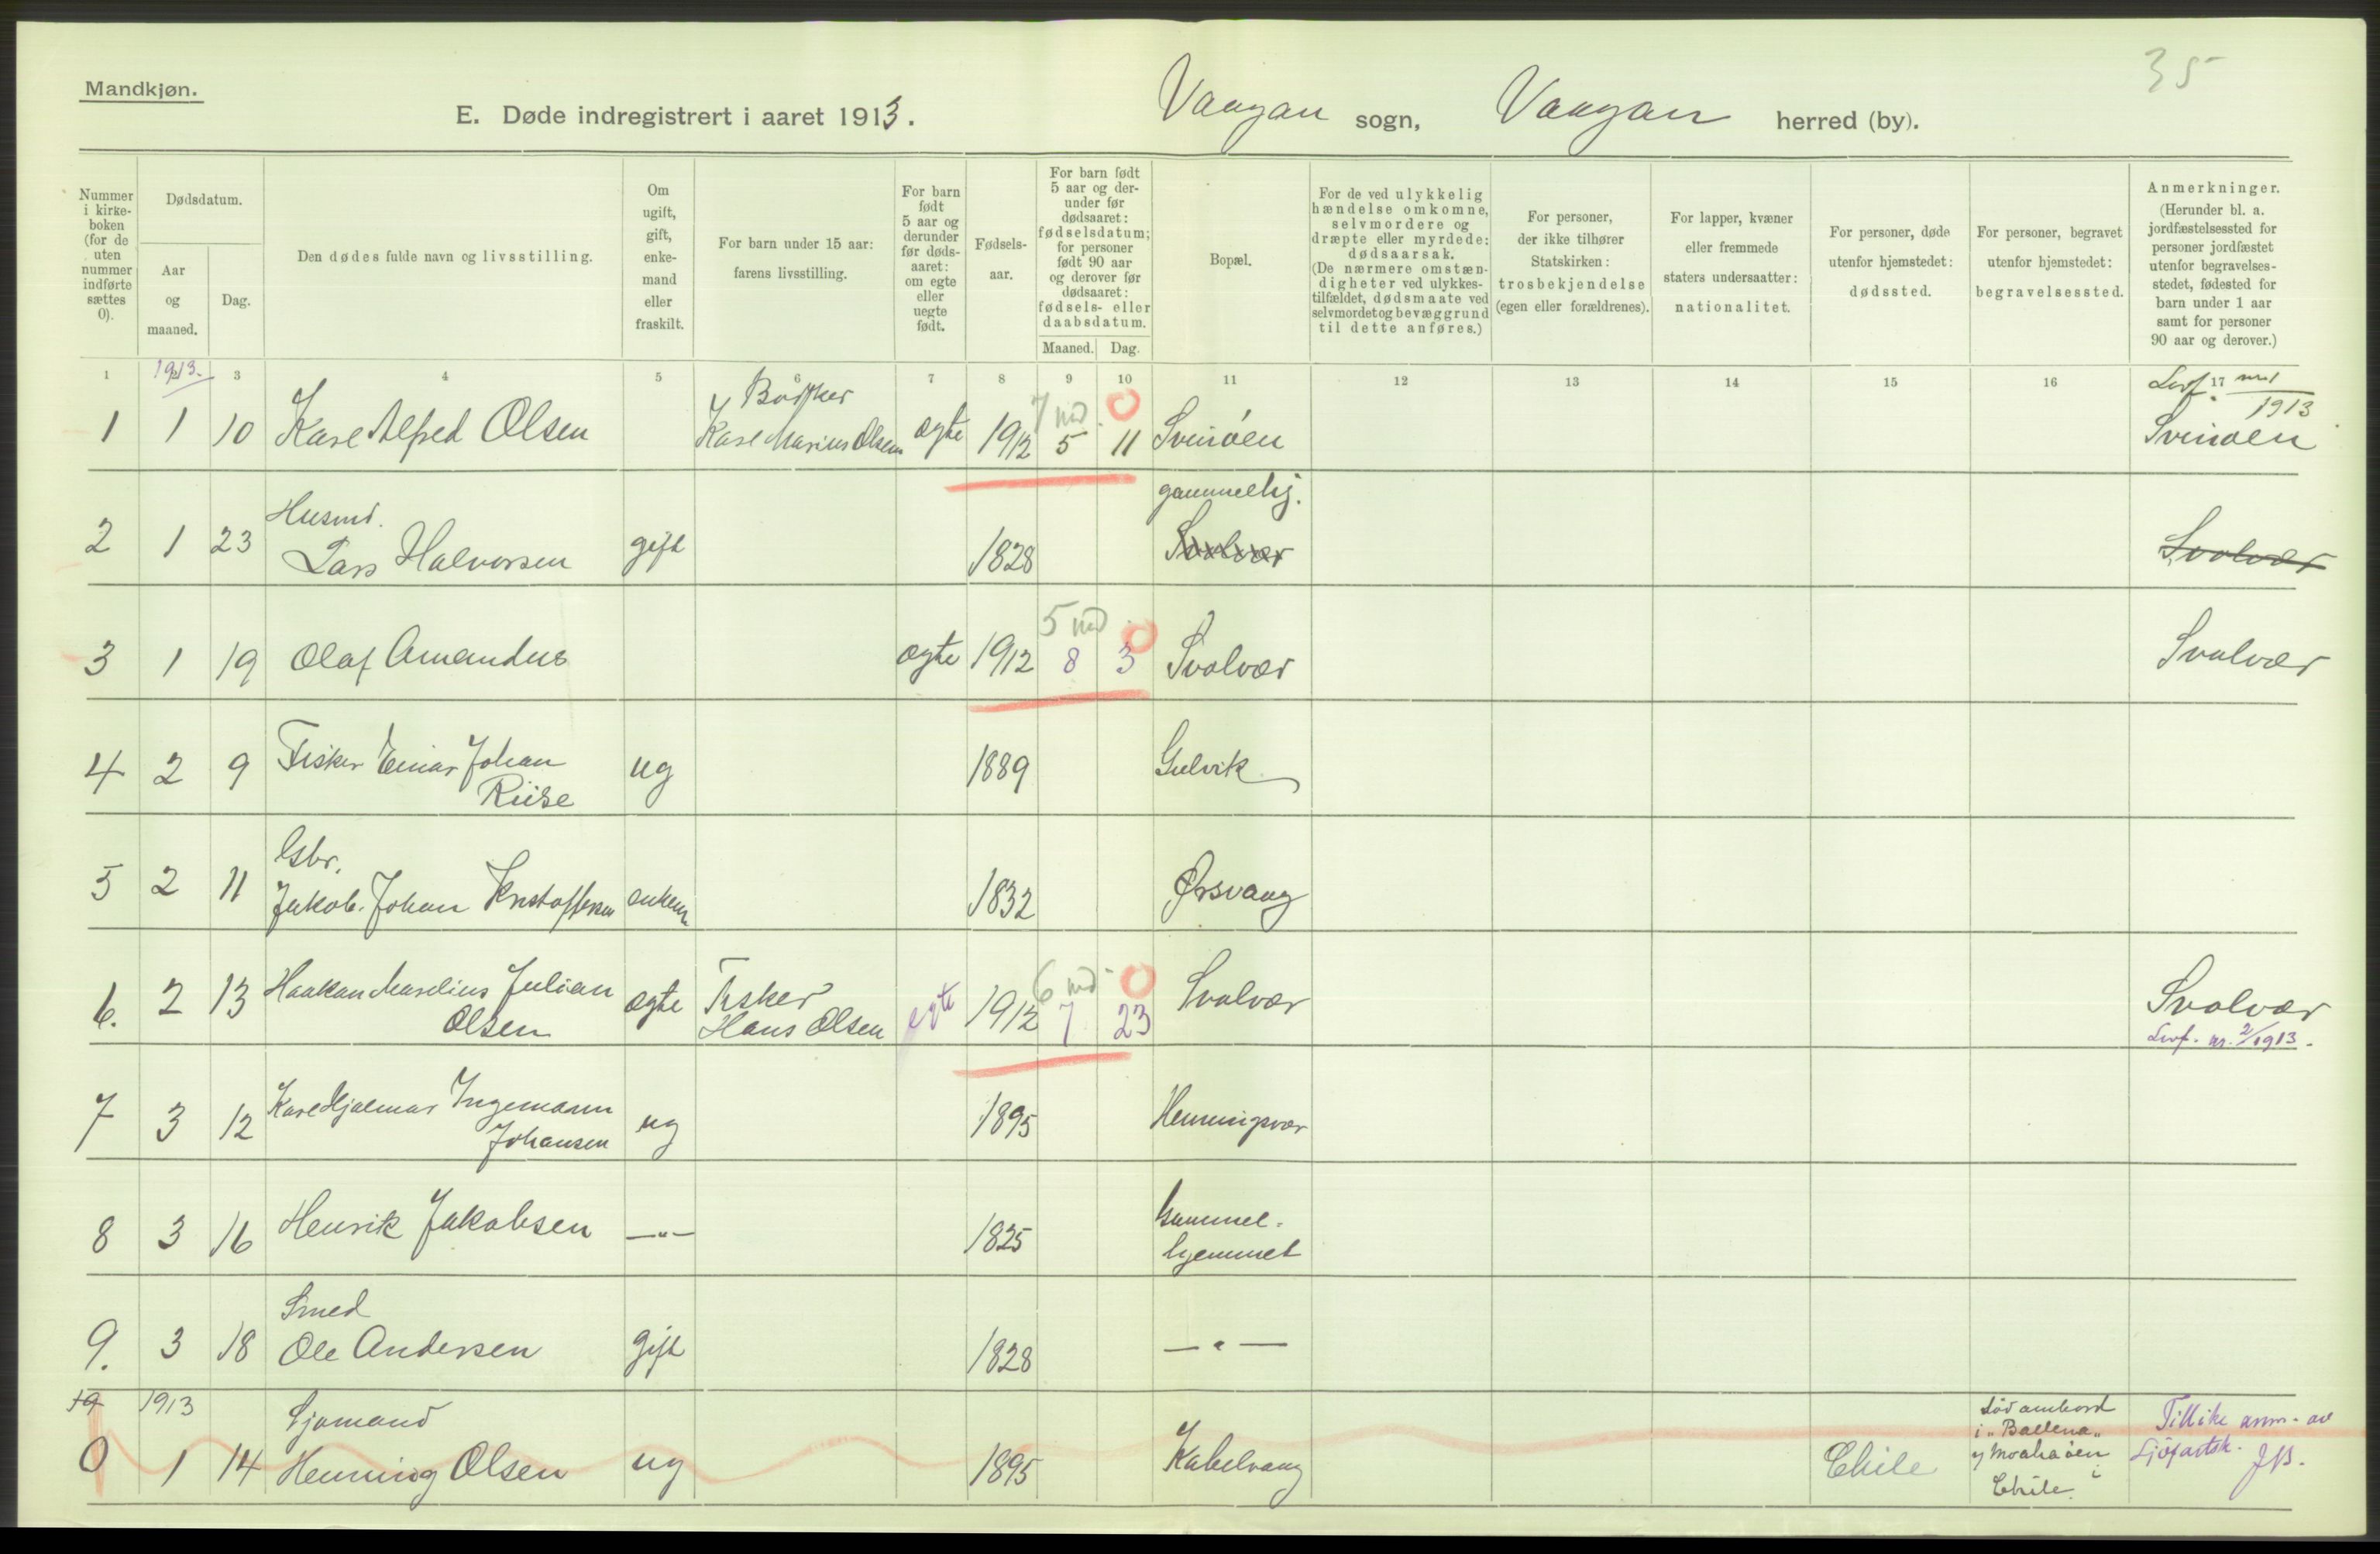 35
Mandkjøn.
E. Døde indregistrert i aaret 1913. Vaagan sogn, Vaagan herred (by).
Nummer i kirkeboken (for de uten nummer indførte sættes 0).
Dødsdatum.
Aar og maaned.
Dag.
Den dødes fulde navn og livsstilling.
Om ugift, gift, enkemand eller fraskilt.
For barn under 15 aar: farens livsstilling.
For barn født 5 aar og derunder før dødsaaret: om egte eller uegte født.
Fødselsaar.
For barn født 5 aar og derunder før dødsaaret: fødselsdatum; for personer født 90 aar og derover før dødsaaret: fødsels- eller daabsdatum.
Maaned. Dag.
Bopæl.
For de ved ulykkelig hændelse omkomne, selvmordere og dræpte eller myrdede: dødsaarsak. (De nærmere omstændigheter ved ulykkestilfældet, dødsmaate ved selvmordet og bevæggrund til dette anføres.)
For personer, der ikke tilhører Statskirken: trosbekjendelse (egen eller forældrenes).
For lapper, kvæner eller fremmede staters undersaatter: nationalitet.
For personer, døde utenfor hjemstedet: dødssted.
For personer, begravet utenfor hjemstedet: begravelsessted.
Anmerkninger.
(Herunder bl. a. jordfæstelsessted for personer jordfæstet utenfor begravelsesstedet, fødested for barn under 1 aar samt for personer 90 aar og derover.)
1 1913. 3 4 5 6 7 8 9 10 11 12 13 14 15 16 17
1 1 10 Karl Alfred Olsen Karl Marius Olsen egte 1912 7 md. 5 11 0 Svinöen 1913 Svinöen
2 1 23 Husmd. Lars Halvorsen gift 1828 gammelhj. Svolvær Svolvær
3 1 19 Olaf Amandus egte 1912 5 md 8 3 0 Svolvær Svolvær
4 2 9 Fisker Einar Johan Riise ug 1889 Gulvik
5 2 11 Gbr. Jakob Johan Kristoffersen enkem 1832 Ørsvaag
6. 2 13 Haakon Marelius Julian Olsen egte Fisker Hans Olsen egte 1912 6 md 7 23 0 Svolvær Svolvær
Levf. nr. 2/1913.
7 3 12 Karl Hjalmar Ingemann Johansen ug 1895 Henningsvær
8 3 16 Henrik Jakobsen —"— 1825 Gammelhjemmet
9. 3 18 Smed Ole Andersen gift 1828 —"—
10 1913
0 1 14 Sjømand Henning Olsen ug 1895 Kabelvaag Chile Död ambord i "Ballena" i Chile. Tillike anm. av Sjöfartsk. JB.